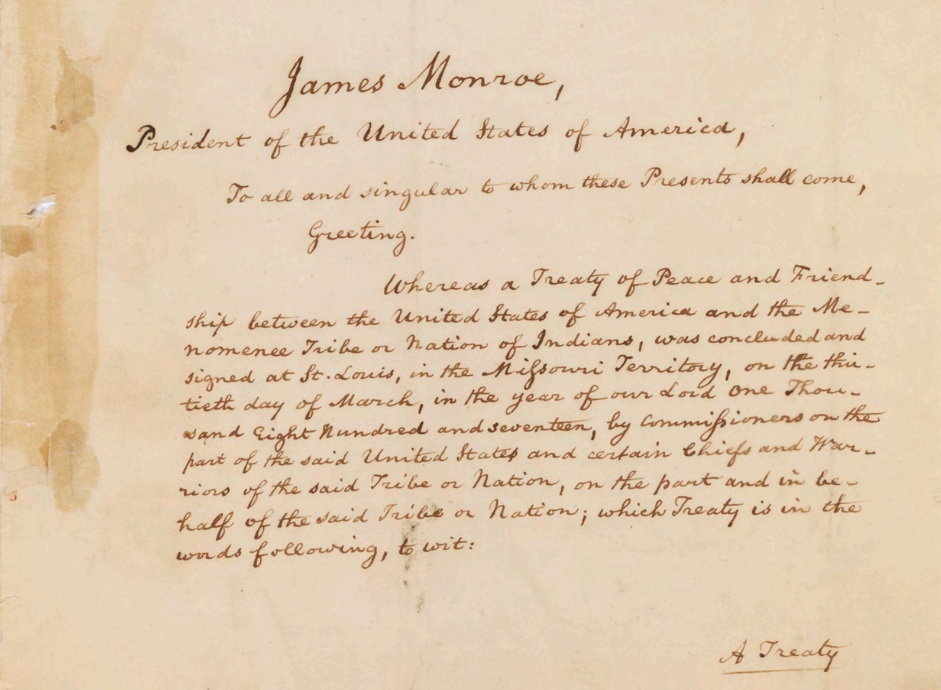 James Monroe,
President of the United States of America,
To all and singular to whom these Presents shall come,
Greeting.
Whereas a Treaty of Peace and Friend-
ship between the United States of America and the Me-
nomenee Tribe or Nation of Indians, was concluded and
signed at St. Louis, in the Missouri Territory, on the thir-
tieth day of March, in the year of our Lord One Thou-
sand Eight Hundred and seventeen, by Commissioners on the
part of the said United States and certain Chiefs and War-
riors of the said Tribe or Nation, on the part and in be-
half of the said Tribe or Nation; which Treaty is in the
words following, to wit:
A Treaty